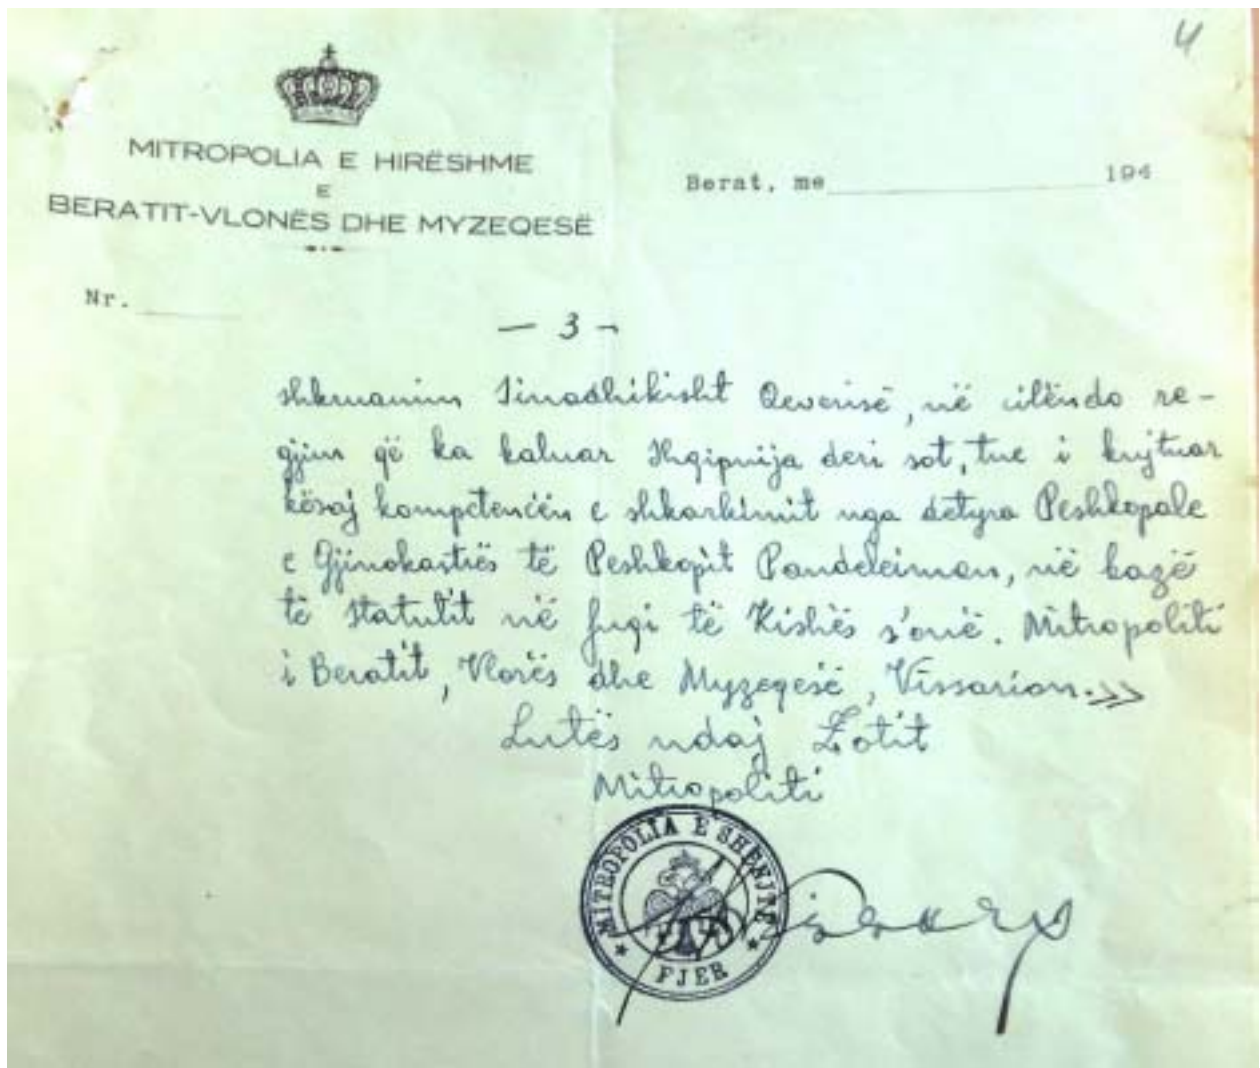 4
MITROPOLIA E HIRËSHME
E
BERATIT-VLONËS DHE MYZEQESË
Berat, me 194
Nr.
— 3 —
shkruanim Sinodhikisht Qeverisë, në cilëndo re-
gjim që ka kaluar Shqipnija deri sot, tue i kujtuar
kësaj kompetencën e shkarkimit nga detyra Peshkopale
e Gjinokastrës të Peshkopit Pandeleimon, në bazë
të statutit në fuqi të Kishës s'onë. Mitropoliti
i Beratit, Vlorës dhe Myzeqesë, Vissarion.»
Lutës ndaj Zotit
Mitropoliti
MITROPOLIA E SHENJTE
FJER